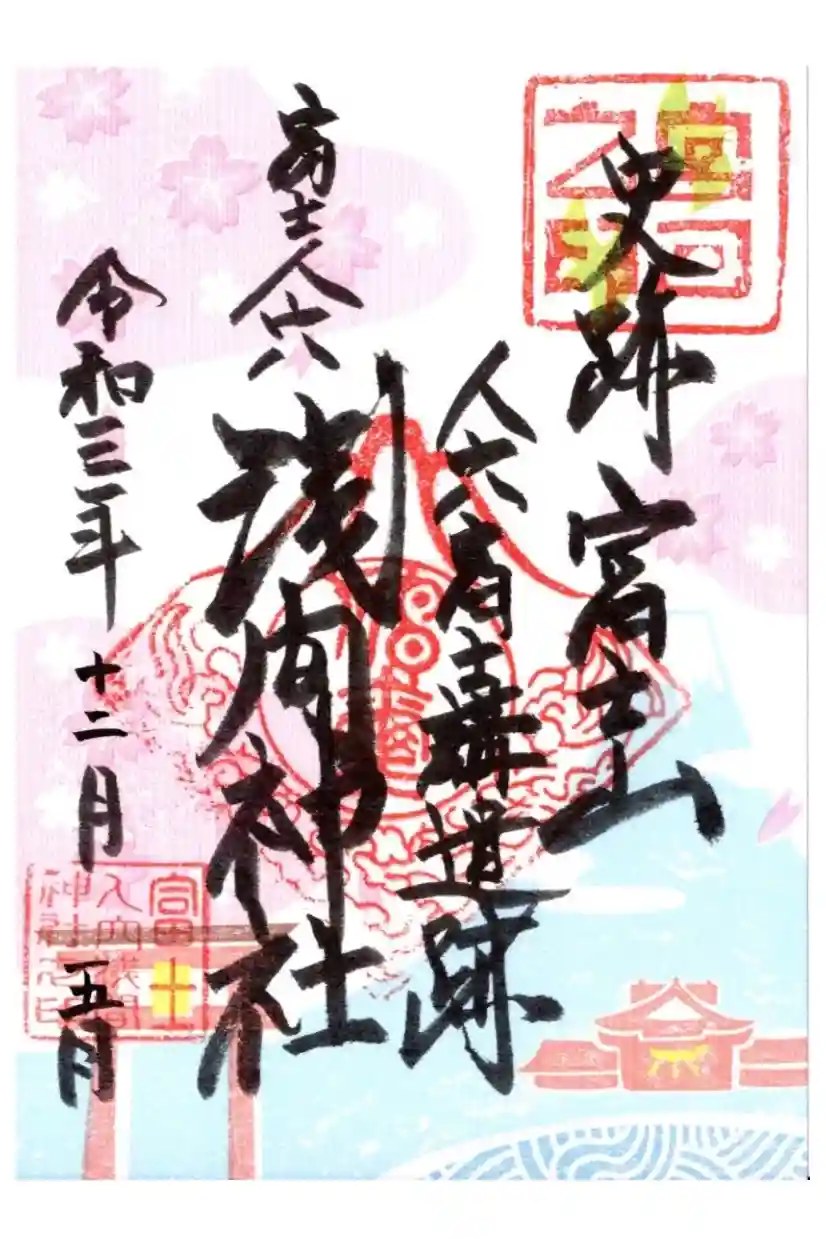 史跡 富士山
人穴富士講遺跡
富士人穴
浅間神社
令和三年十二月五月
富士
人穴浅間
神社之印